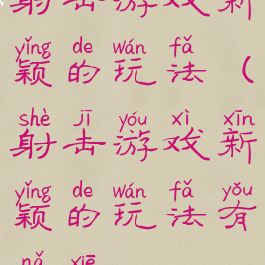 射击游戏新
yǐng de wán fǎ
颖的玩法（
shè jī yóu xì xīn
射击游戏新
yǐng de wán fǎ yǒu
颖的玩法有
nǎ xiē